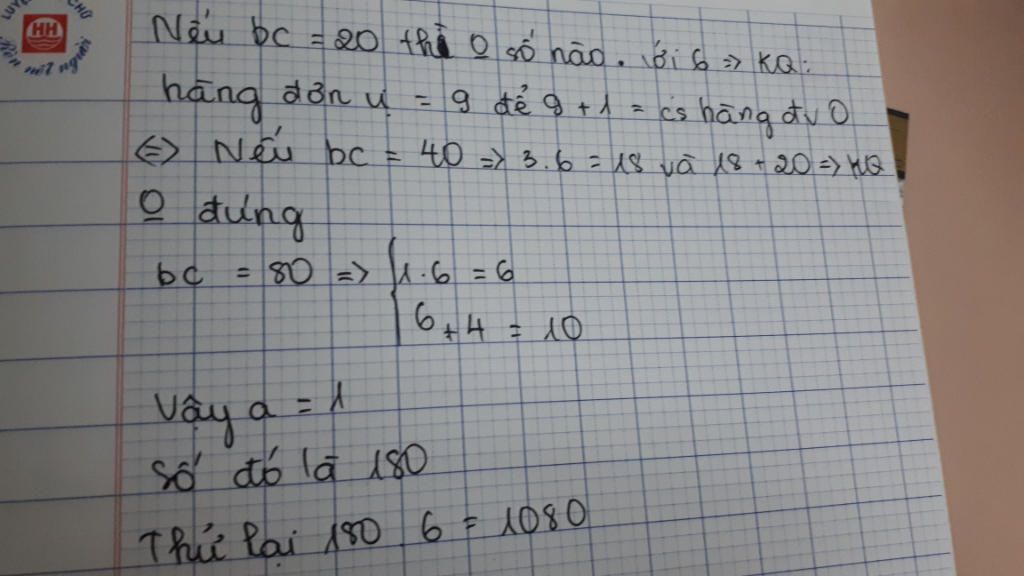 LUYỆN CHỮ
HH
Rèn nết người
Nếu bc = 20 thì O số nào . với 6 => KQ:
hàng đơn vị = 9 để 9 + 1 = cs hàng đv 0
<=> Nếu bc = 40 => 3.6 = 18 và 18 + 20 => KQ
O đúng
bc = 80 => { 1.6 = 6
6 + 4 = 10
Vậy a = 1
Số đó là 180
Thử lại 180 6 = 1080